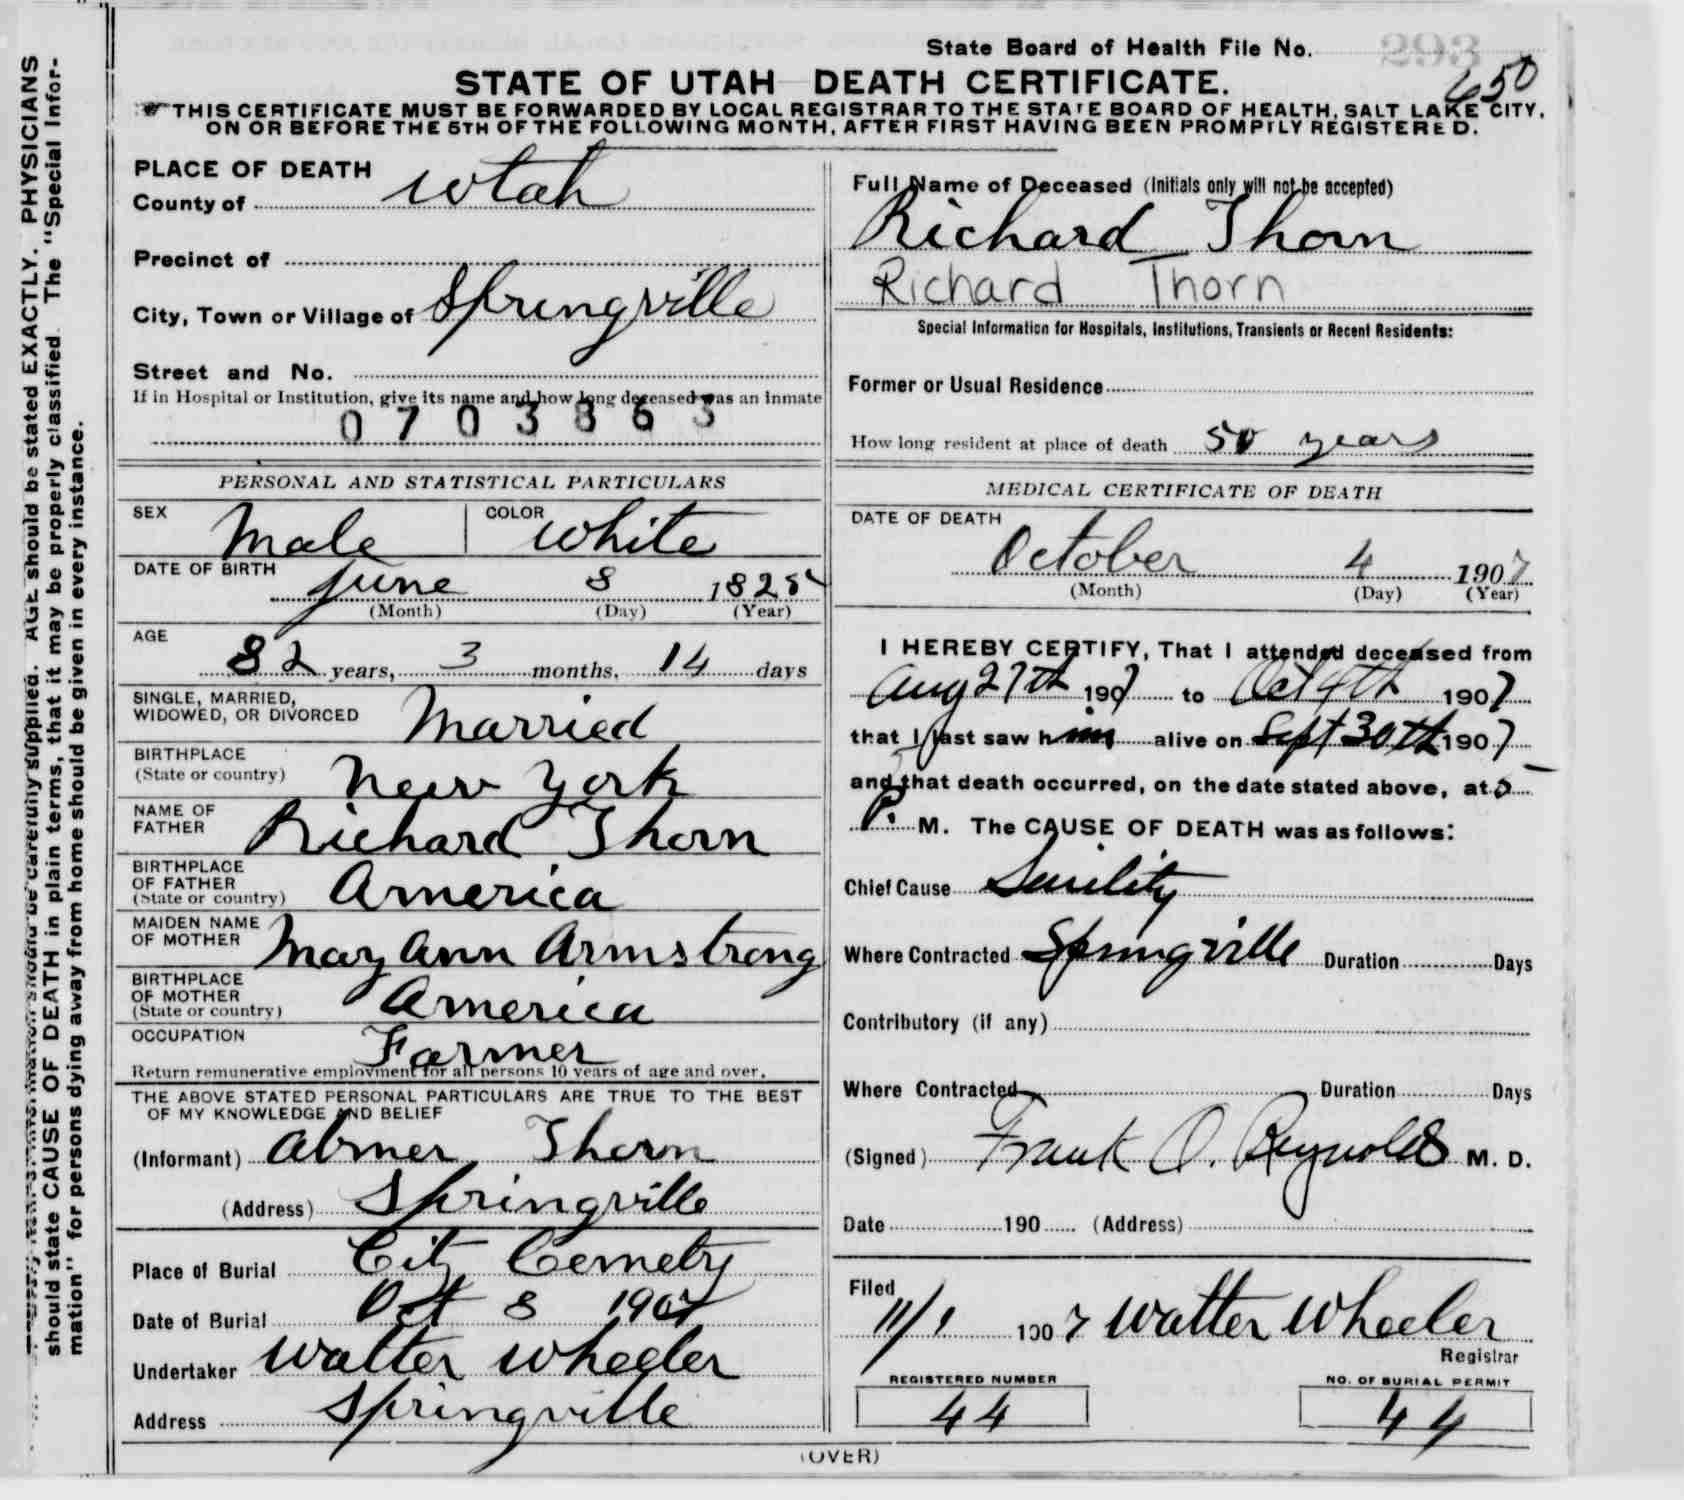 State Board of Health File No. 293
650
STATE OF UTAH DEATH CERTIFICATE.
THIS CERTIFICATE MUST BE FORWARDED BY LOCAL REGISTRAR TO THE STATE BOARD OF HEALTH, SALT LAKE CITY,
ON OR BEFORE THE 5TH OF THE FOLLOWING MONTH, AFTER FIRST HAVING BEEN PROMPTLY REGISTERED.
PLACE OF DEATH
County of Utah
Precinct of
City, Town or Village of Springville
Street and No.
If in Hospital or Institution, give its name and how long deceased was an inmate
0703863
PERSONAL AND STATISTICAL PARTICULARS
SEX Male COLOR White
DATE OF BIRTH
June 8 1825
(Month) (Day) (Year)
AGE
82 years, 3 months, 14 days
SINGLE, MARRIED,
WIDOWED, OR DIVORCED Married
BIRTHPLACE
(State or country) New York
NAME OF
FATHER Richard Thorn
BIRTHPLACE
OF FATHER
(State or country) America
MAIDEN NAME
OF MOTHER Mary Ann Armstrong
BIRTHPLACE
OF MOTHER
(State or country) America
OCCUPATION
Farmer
Return remunerative employment for all persons 10 years of age and over.
THE ABOVE STATED PERSONAL PARTICULARS ARE TRUE TO THE BEST
OF MY KNOWLEDGE AND BELIEF
(Informant) Abmer Thorn
(Address) Springville
Place of Burial City Cemetry
Date of Burial Oct 8 1907
Undertaker Walter Wheeler
Address Springville
Full Name of Deceased (Initials only will not be accepted)
Richard Thorn
Richard Thorn
Special Information for Hospitals, Institutions, Transients or Recent Residents:
Former or Usual Residence
How long resident at place of death 50 years
MEDICAL CERTIFICATE OF DEATH
DATE OF DEATH
October 4 1907
(Month) (Day) (Year)
I HEREBY CERTIFY, That I attended deceased from
Aug 27th 1907 to Oct 4th 1907
that I last saw him alive on Sept 30th 1907
and that death occurred, on the date stated above, at 5
P. M. The CAUSE OF DEATH was as follows:
Chief Cause Senility
Where Contracted Springville Duration Days
Contributory (if any)
Where Contracted Duration Days
(Signed) Frank O. Reynolds M. D.
Date 190 (Address)
Filed
11/1 1907 Walter Wheeler
Registrar
REGISTERED NUMBER
44
NO. OF BURIAL PERMIT
44
(OVER)
supplied. AGE should be stated EXACTLY. PHYSICIANS
should state CAUSE OF DEATH in plain terms, that it may be properly classified. The "Special Infor-
mation" for persons dying away from home should be given in every instance.